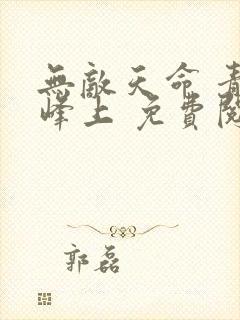 無敵天命 青
峰上 免費閱
郭磊